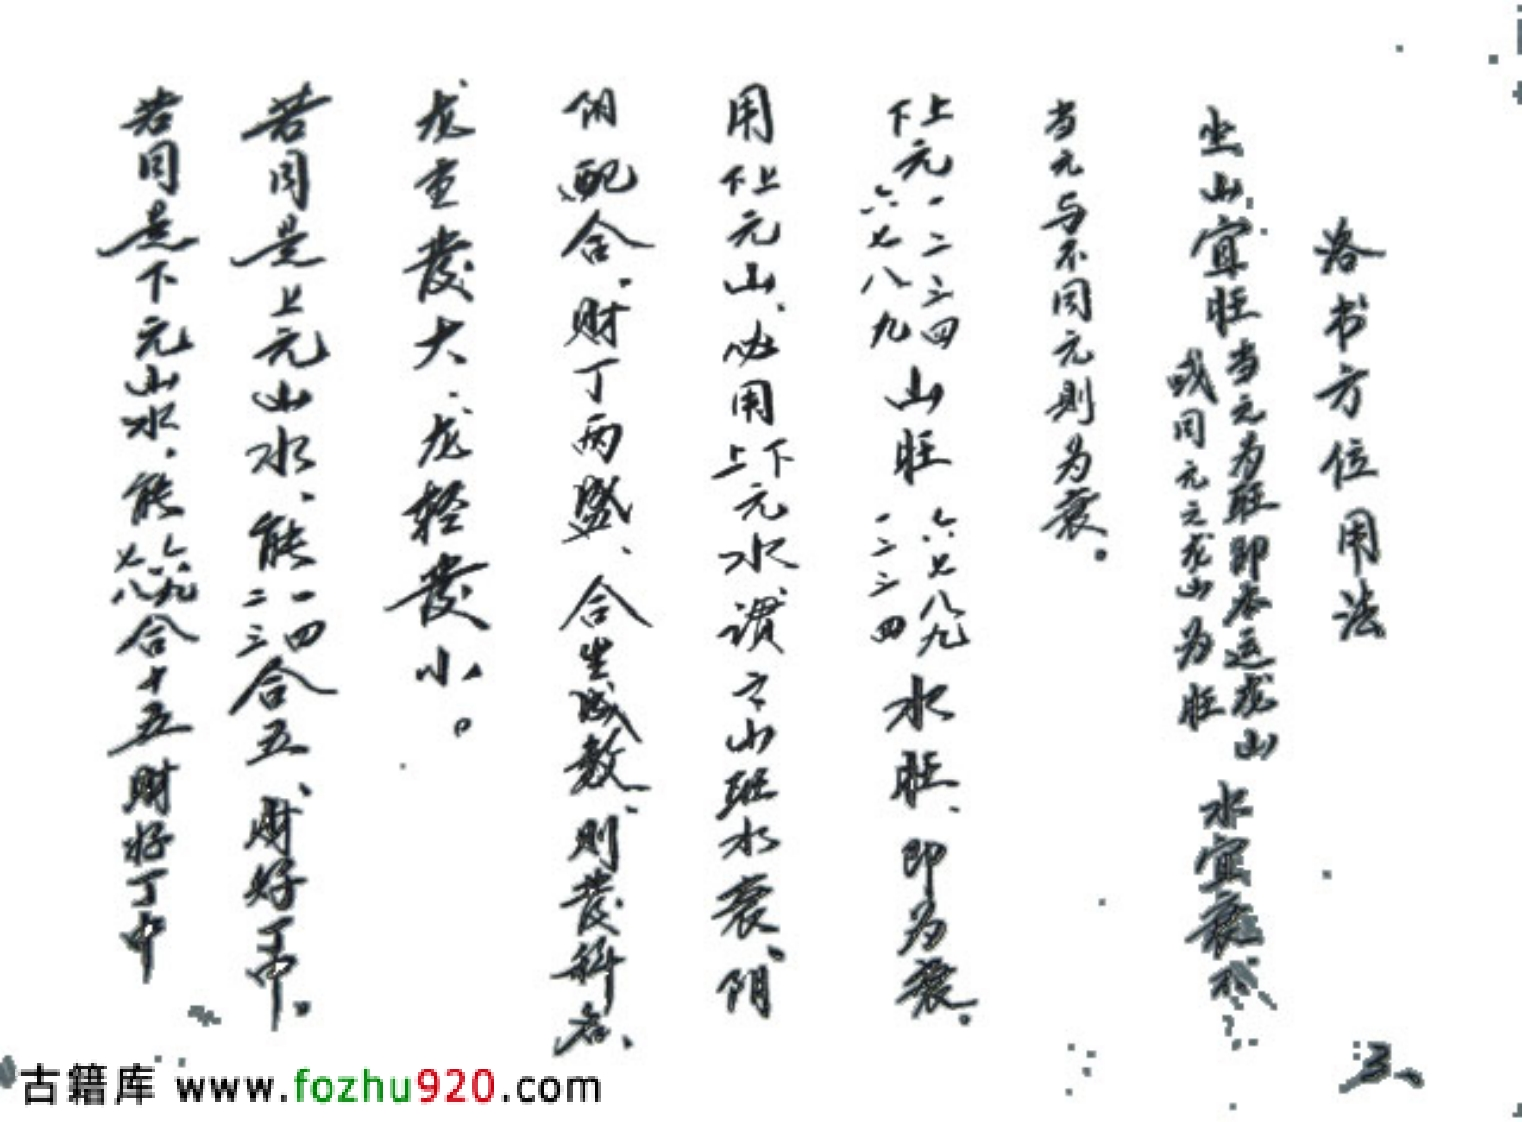 洛书方位用法
坐山宜旺 当元为旺即本运龙山 或同元元龙山为旺 水宜衰 不
当元与不同元则为衰。
上元一二三四 下元六七八九 山旺 六七八九 一二三四 水旺、即为衰。
用上下元山、必用下上元水谓之山旺水衰、阴
阳配合、财丁两盛、合生成数、则发科名、
龙重发大、龙轻发小。
若同是上元山水、能一四二三合五、财好丁中。
若同是下元山水、能六九七八合十五财好丁中
3、
古籍库 www.fozhu920.com